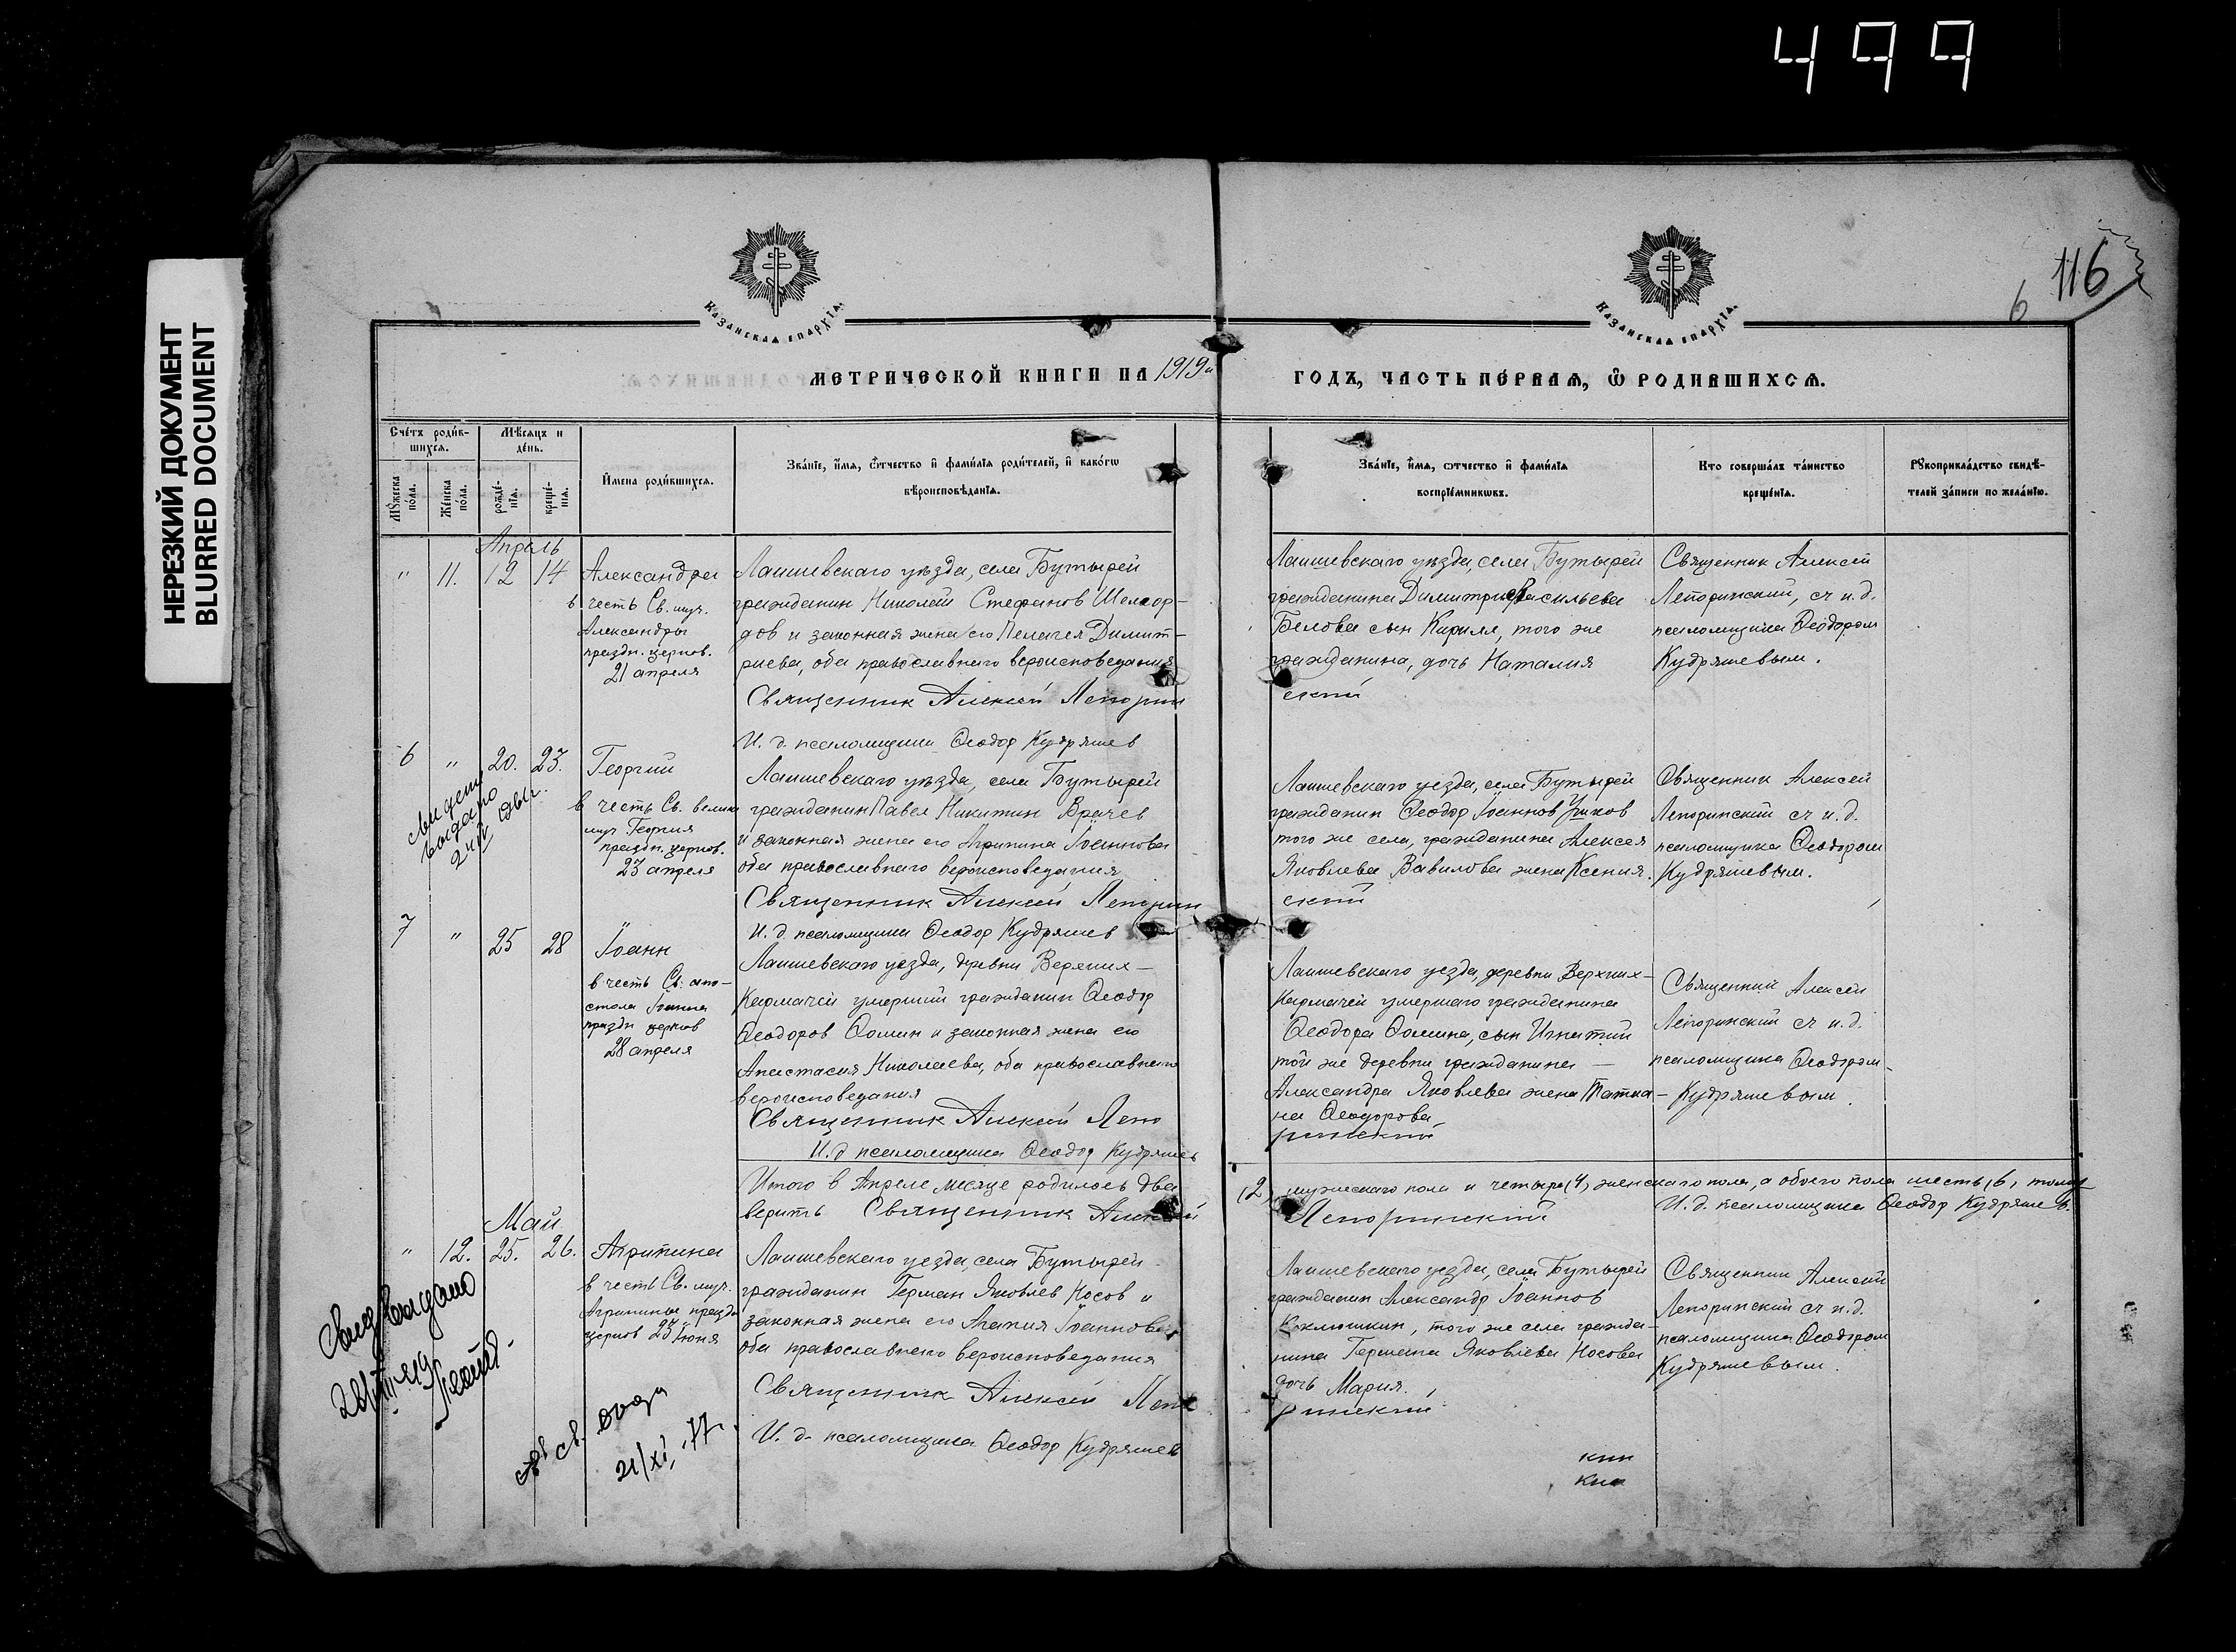 499
НЕРЕЗКИЙ ДОКУМЕНТ
BLURRED DOCUMENT
116
6
Казанская епархїа.
Казанская епархїа.
МЕТРИЧЕСКОЙ КНИГИ НА 1919 й
ГОДЪ, ЧАСТЬ ПЕРВАЯ, Ѿ РОДИВШИХСЯ.
Счетъ родив-
шихся.
Мѣсяцъ и
день.
Мꙋжеска
пола.
Женска
пола.
рожде-
нїя.
креще-
нїя.
Имена родившихся.
Званїе, имя, ѿчество и фамилїя родителей, и какогѡ
вѣроисповѣданїя.
Званїе, имя, ѿчество и фамилїя
воспрїемникѡвъ.
Кто совершалъ таинство
крещенїя.
Рꙋкоприкладство свидѣ-
телей записи по желанїю.
Апрель
" 11. 12 14
Александра
в честь Св. муч.
Александры
праздн. церков.
21 апреля
Лаишевскаго уѣзда, села Бутырей
гражданин Николай Стефанов
дов и законная жена его Пелагея Димит-
риева, оба православнаго вероисповедания
Священник Алексей Лепорин
И. д. псаломщика Ѳеодор Кудряшев
Лаишевскаго уѣзда, села Бутырей
гражданина Димитрия Васильева
Белова сын Кирилл, того же
гражданина, дочь Наталия
ский
Священник Алексей
Лепоринский, с и. д.
псаломщика Ѳеодором
Кудряшевым.
6 " 20. 23.
Георгий
в честь Св. велико
муч Георгия
праздн. церков.
23 апреля
выдано
Лаишевскаго уѣзда, села Бутырей
гражданин Павел Никитин Врачев
и законная жена его Агрипина Іоаннова
оба православнаго вероисповедания
Священник Алексей Лепорин
И. д. псаломщика Ѳеодор Кудряшев
Лаишевскаго уезда, села Бутырей
гражданин Ѳеодор Іоаннов
того же села, гражданина Алексея
Яковлева Вавилова жена Ксения.
ский
Священник Алексей
Лепоринский с и. д.
псаломщика Ѳеодором
Кудряшевым.
7 " 25 28
Іоанн
в честь Св. апо-
стола Іоанна
праздн церков
28 апреля
Лаишевскаго уезда, деревни Верхних-
Кермачей умерший гражданин Ѳеодор
Ѳеодоров Ѳомин и законная жена его
Анастасия Николаева, оба православнаго
вероисповедания
Священник Алексей Лепо
И. д псаломщика Ѳеодор Кудряшев
Лаишевскаго уезда, деревни Верхних-
Кермачей умершаго гражданина
Ѳеодора Ѳомина, сын Игнатий
той же деревни гражданина -
Александра Яковлева жена Татиа-
на Ѳеодорова
ринский
Священник Алексей
Лепоринский с и. д.
псаломщика Ѳеодором-
Кудряшевым.
Итого в Апреле месяце родилось два
(2) мужескаго пола и четыре (4) женскаго пола, а обоего пола шесть (6)
верить Священник Алексей
Лепоринский
И. д. псаломщика Ѳеодор Кудряшев.
Май
" 12. 25. 26.
Агрипина
в честь Св. муч.
Агрипины праздн
церков 23 Іюня
выдано
21/XI. 77.
Лаишевскаго уезда, села Бутырей
гражданин Герман Яковлев Носов и
законная жена его Агапия Іоаннова,
оба православнаго вероисповедания
Священник Алексей Лепо
И. д. псаломщика Ѳеодор Кудряшев
Лаишевскаго уезда, села Бутырей
гражданин Александр Іоаннов
Коклюшкин, того же села гражда-
нина Германа Яковлева Носова
дочь Мария.
ринский
Священник Алексей
Лепоринский с и. д.
псаломщика Ѳеодором
Кудряшевым.